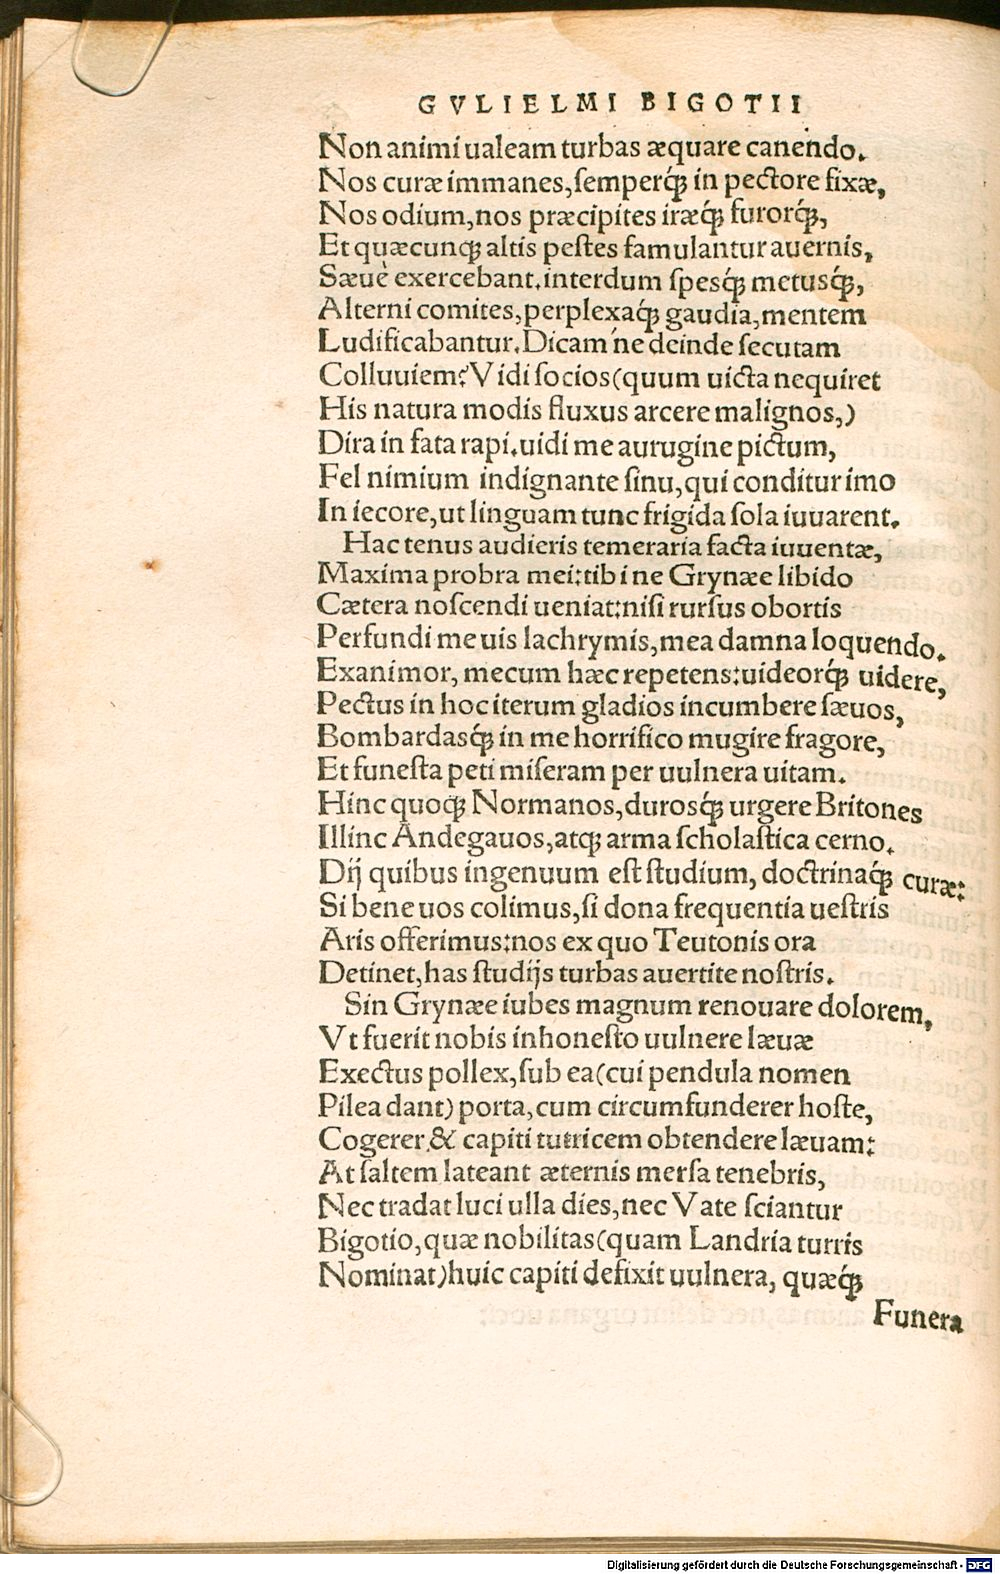 GVLIELMI BIGOTII
Non animi ualeam turbas æquare canendo.
Nos curæ immanes, ſemperq́ꝫ in pectore fixæ,
Nos odium, nos præcipites iræq́ꝫ furorq́ꝫ,
Et quæcunqꝫ altis peſtes famulantur auernis,
Sæuè exercebant. interdum ſpesq́ꝫ metusq́ꝫ,
Alterni comites, perplexaq́ꝫ gaudia, mentem
Ludificabantur. Dicam ́ne deinde ſecutam
Colluuiem? Vidi ſocios (quum uicta nequiret
His natura modis fluxus arcere malignos,)
Dira in fata rapi. uidi me aurugine pictum,
Fel nimium indignante ſinu, qui conditur imo
In iecore, ut linguam tunc frigida ſola iuuarent.
Hactenus audieris temeraria facta iuuentæ,
Maxima probra mei: tibi ne Grynæe libido
Cætera noſcendi ueniat: niſi rurſus obortis
Perfundi me uis lachrymis, mea damna loquendo.
Exanimor, mecum hæc repetens: uideorq́ꝫ uidere,
Pectus in hoc iterum gladios incumbere ſæuos,
Bombardasq́ꝫ in me horrifico mugire fragore,
Et funeſta peti miſeram per uulnera uitam.
Hinc quoqꝫ Normanos, durosq́ꝫ urgere Britones
Illinc Andegauos, atqꝫ arma ſcholaſtica cerno.
Dij quibus ingenuum eſt ſtudium, doctrinaq́ꝫ curæ:
Si bene uos colimus, ſi dona frequentia ueſtris
Aris offerimus: nos ex quo Teutonis ora
Detinet, has ſtudijs turbas auertite noſtris.
Sin Grynæe iubes magnum renouare dolorem,
Vt fuerit nobis inhoneſto uulnere læuæ
Exectus pollex, ſub ea (cui pendula nomen
Pilea dant) porta, cum circumfunderer hoſte,
Cogerer & capiti tutricem obtendere læuam:
At ſaltem lateant æternis merſa tenebris,
Nec tradat luci ulla dies, nec Vate ſciantur
Bigotio, quæ nobilitas (quam Landria turris
Nominat) huic capiti defixit uulnera, quæq́ꝫ
Funera
Digitalisierung gefördert durch die Deutsche Forschungsgemeinschaft - DFG